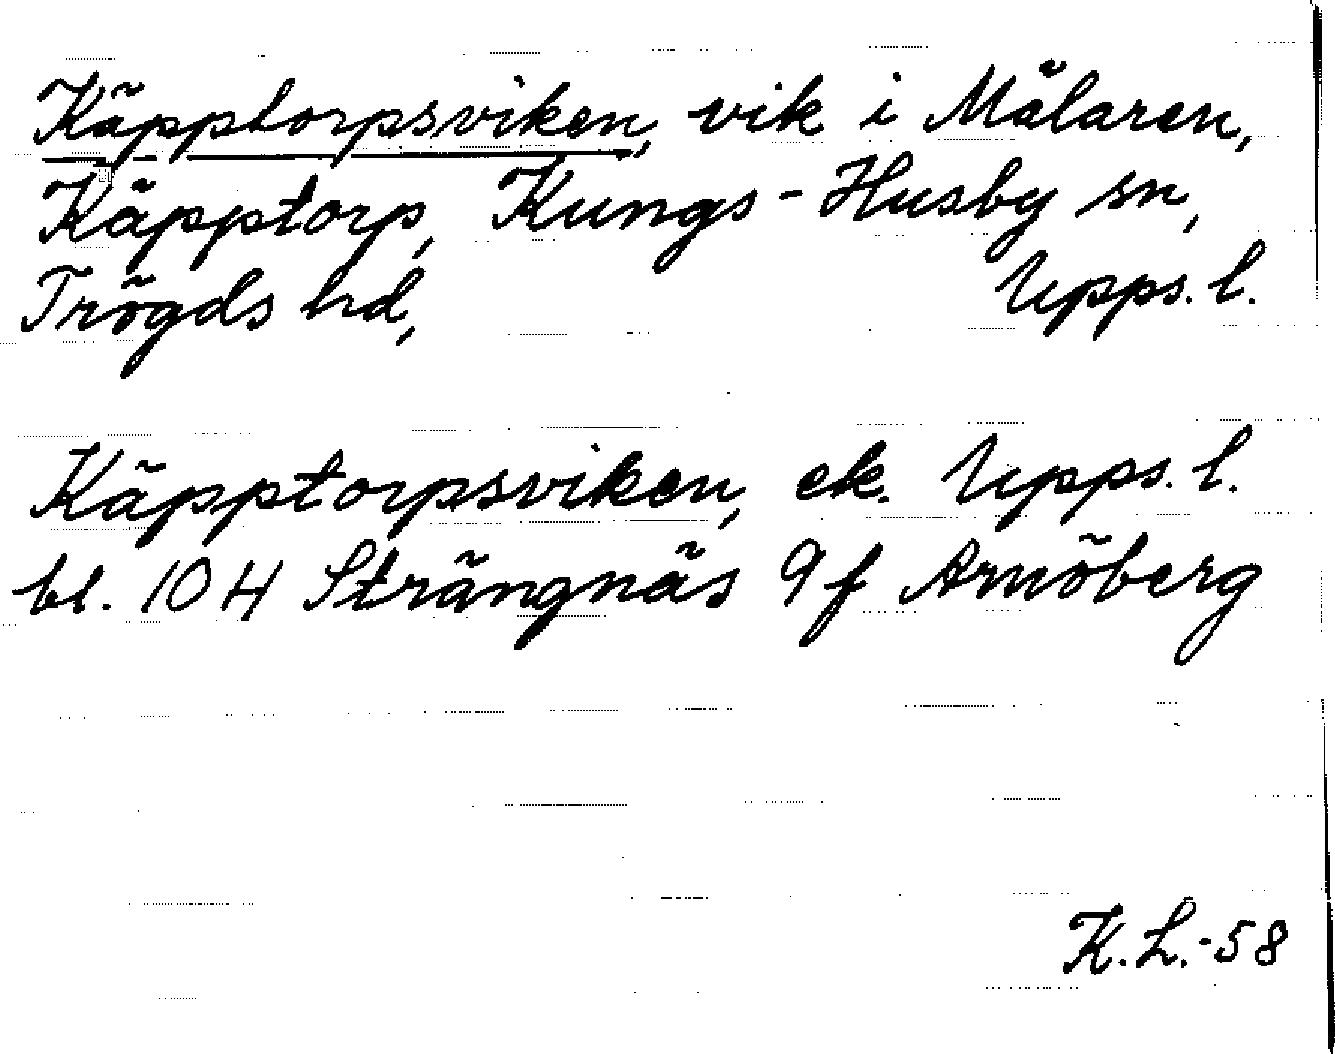 Käpptorpsviken, vik i Mälaren,
Käpptorp, Kungs-Husby sn,
Trögds hd, Upps. l.
Käpptorpsviken, ek. Upps. l.
bl. 104 Strängnäs 9f Arnöberg
K.L.-58